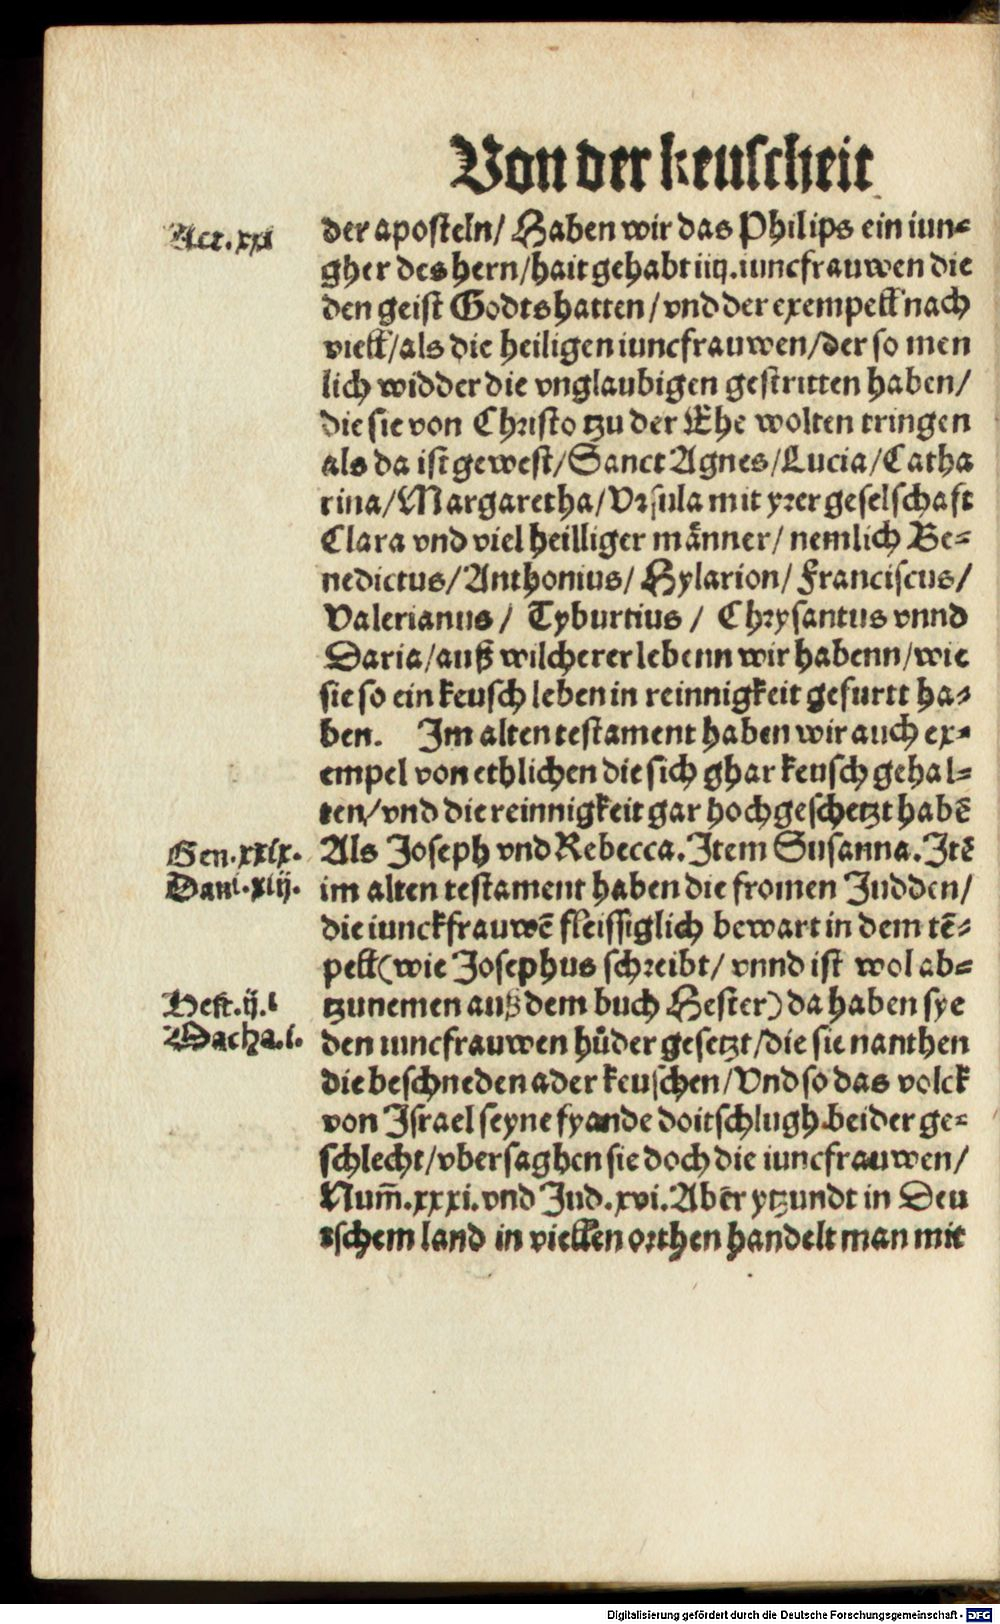 Von der keuscheit
Act. xxi
der aposteln/ Haben wir das Philips ein iun-
gher des hern/hait gehabt iiij. iuncfrauwen die
den geist Godts hatten/vnd der exempell nach
viell/als die heiligen iuncfrauwen/der so men
lich widder die vnglaubigen gestritten haben/
die sie von Christo tzu der Ehe wolten tringen
als da ist gewest/Sanct Agnes/Lucia/Catha
rina/Margaretha/Vrsula mit yrer geselschaft
Clara vnd viel heilliger männer/ nemlich Be-
nedictus/Anthonius/ Hylarion/ Franciscus/
Valerianus/ Tyburtius/ Chrysantus vnnd
Daria/auß wilcherer lebenn wir habenn/wie
sie so ein keusch leben in reinnigkeit gefurtt ha-
ben. Im alten testament haben wir auch ex-
empel von ethlichen die sich ghar keusch gehal-
ten/vnd die reinnigkeit gar hochgeschetzt habē
Gen. xxix.
Als Joseph vnd Rebecca. Item Susanna. Itē
Dani. xiij.
im alten testament haben die fromen Judden/
die iunckfrauwē fleissiglich bewart in dem tē-
pell(wie Josephus schreibt/ vnnd ist wol ab-
Hest. ij. i
tzunemen auß dem buch Hester) da haben sye
Macha. i.
den iuncfrauwen hüder gesetzt/die sie nanthen
die beschneden ader keuschen/Vnd so das volck
von Israel seyne fyande doitschlugh beider ge-
schlecht/vbersaghen sie doch die iuncfrauwen/
Num̄. xxxi. vnd Jud. xvi. Abēr ytzundt in Deu
tschem land in viellen orthen handelt man mit
Digitalisierung gefördert durch die Deutsche Forschungsgemeinschaft - DFG